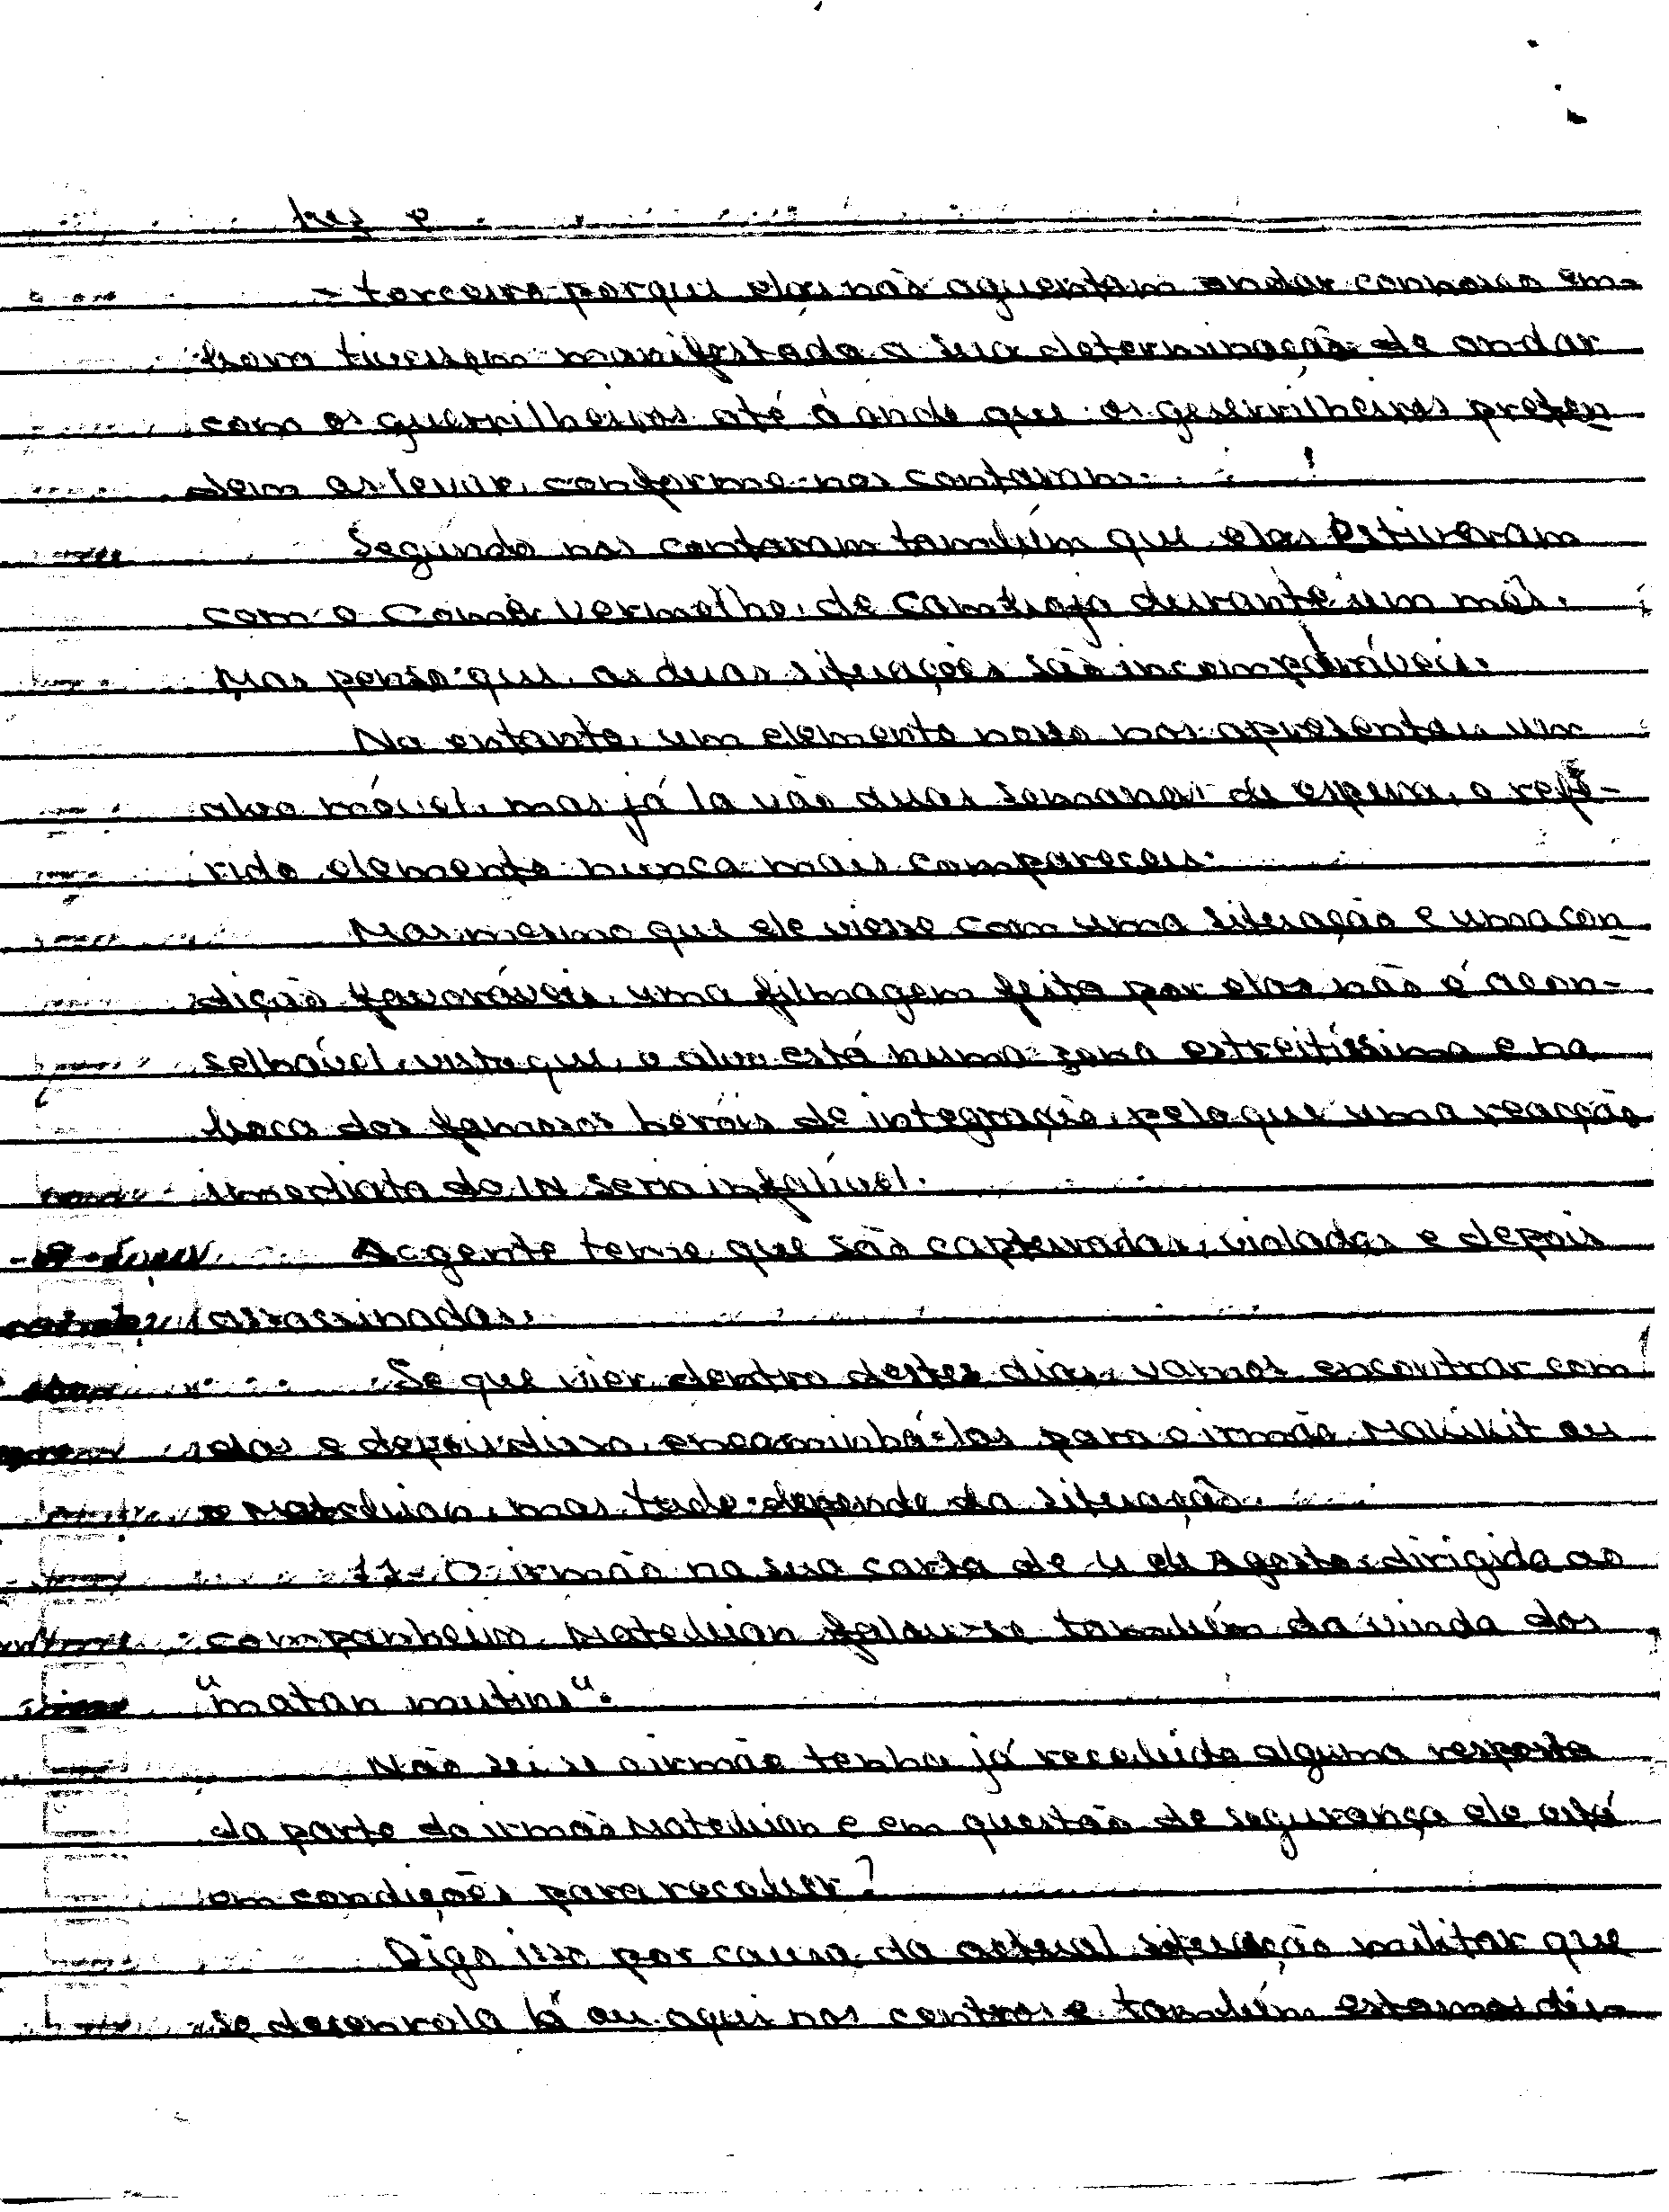 - terceiro porqui elas não aguentam andar connosco em-
bora tivessem manifestado a sua determinação de andar
com os guerrilheiros até á onde que os guerrilheiros preten
dem as levar, conforme nos contaram.
Segundo nos contaram também que elas estiveram
com o Comér Vermelho, de Camboja durante um mês.
Mas penso que, as duas situações são incomparáveis.
No entanto, um elemento nosso nos apresentou um
alvo móvel, mas já la vão duas semanas de espera, o refe-
rido elemento nunca mais compareceu.
Mas mesmo que ele viesse com uma situação e uma con
dição favoráveis, uma filmagem feita por elas não é acon-
selhável, visto que, o alvo está numa zona estreitíssima e na
boca dos famosos heróis de integração, pelo que uma reacção
imediata do IN sera infalível.
A gente teme que são capturadas, violadas e depois
assassinadas.
Se que vier dentro destes dias, vamos encontrar com
elas e depois disso, encaminhá-las para o irmão Maukit ou
o Matebian, mas tudo depende da situação.
11- O irmão na sua carta de 4 de Agosto dirigida ao
companheiro Matebian falou-se também da vinda dos
"matan mutins".
Não sei se o irmão tenha já recebido alguma resposta
da parte do irmão Matebian e em questão de segurança ele está
em condições para receber?
Digo isso por causa da actual situação militar que
se desenrola lá ou aqui nos centros e também estamos di-